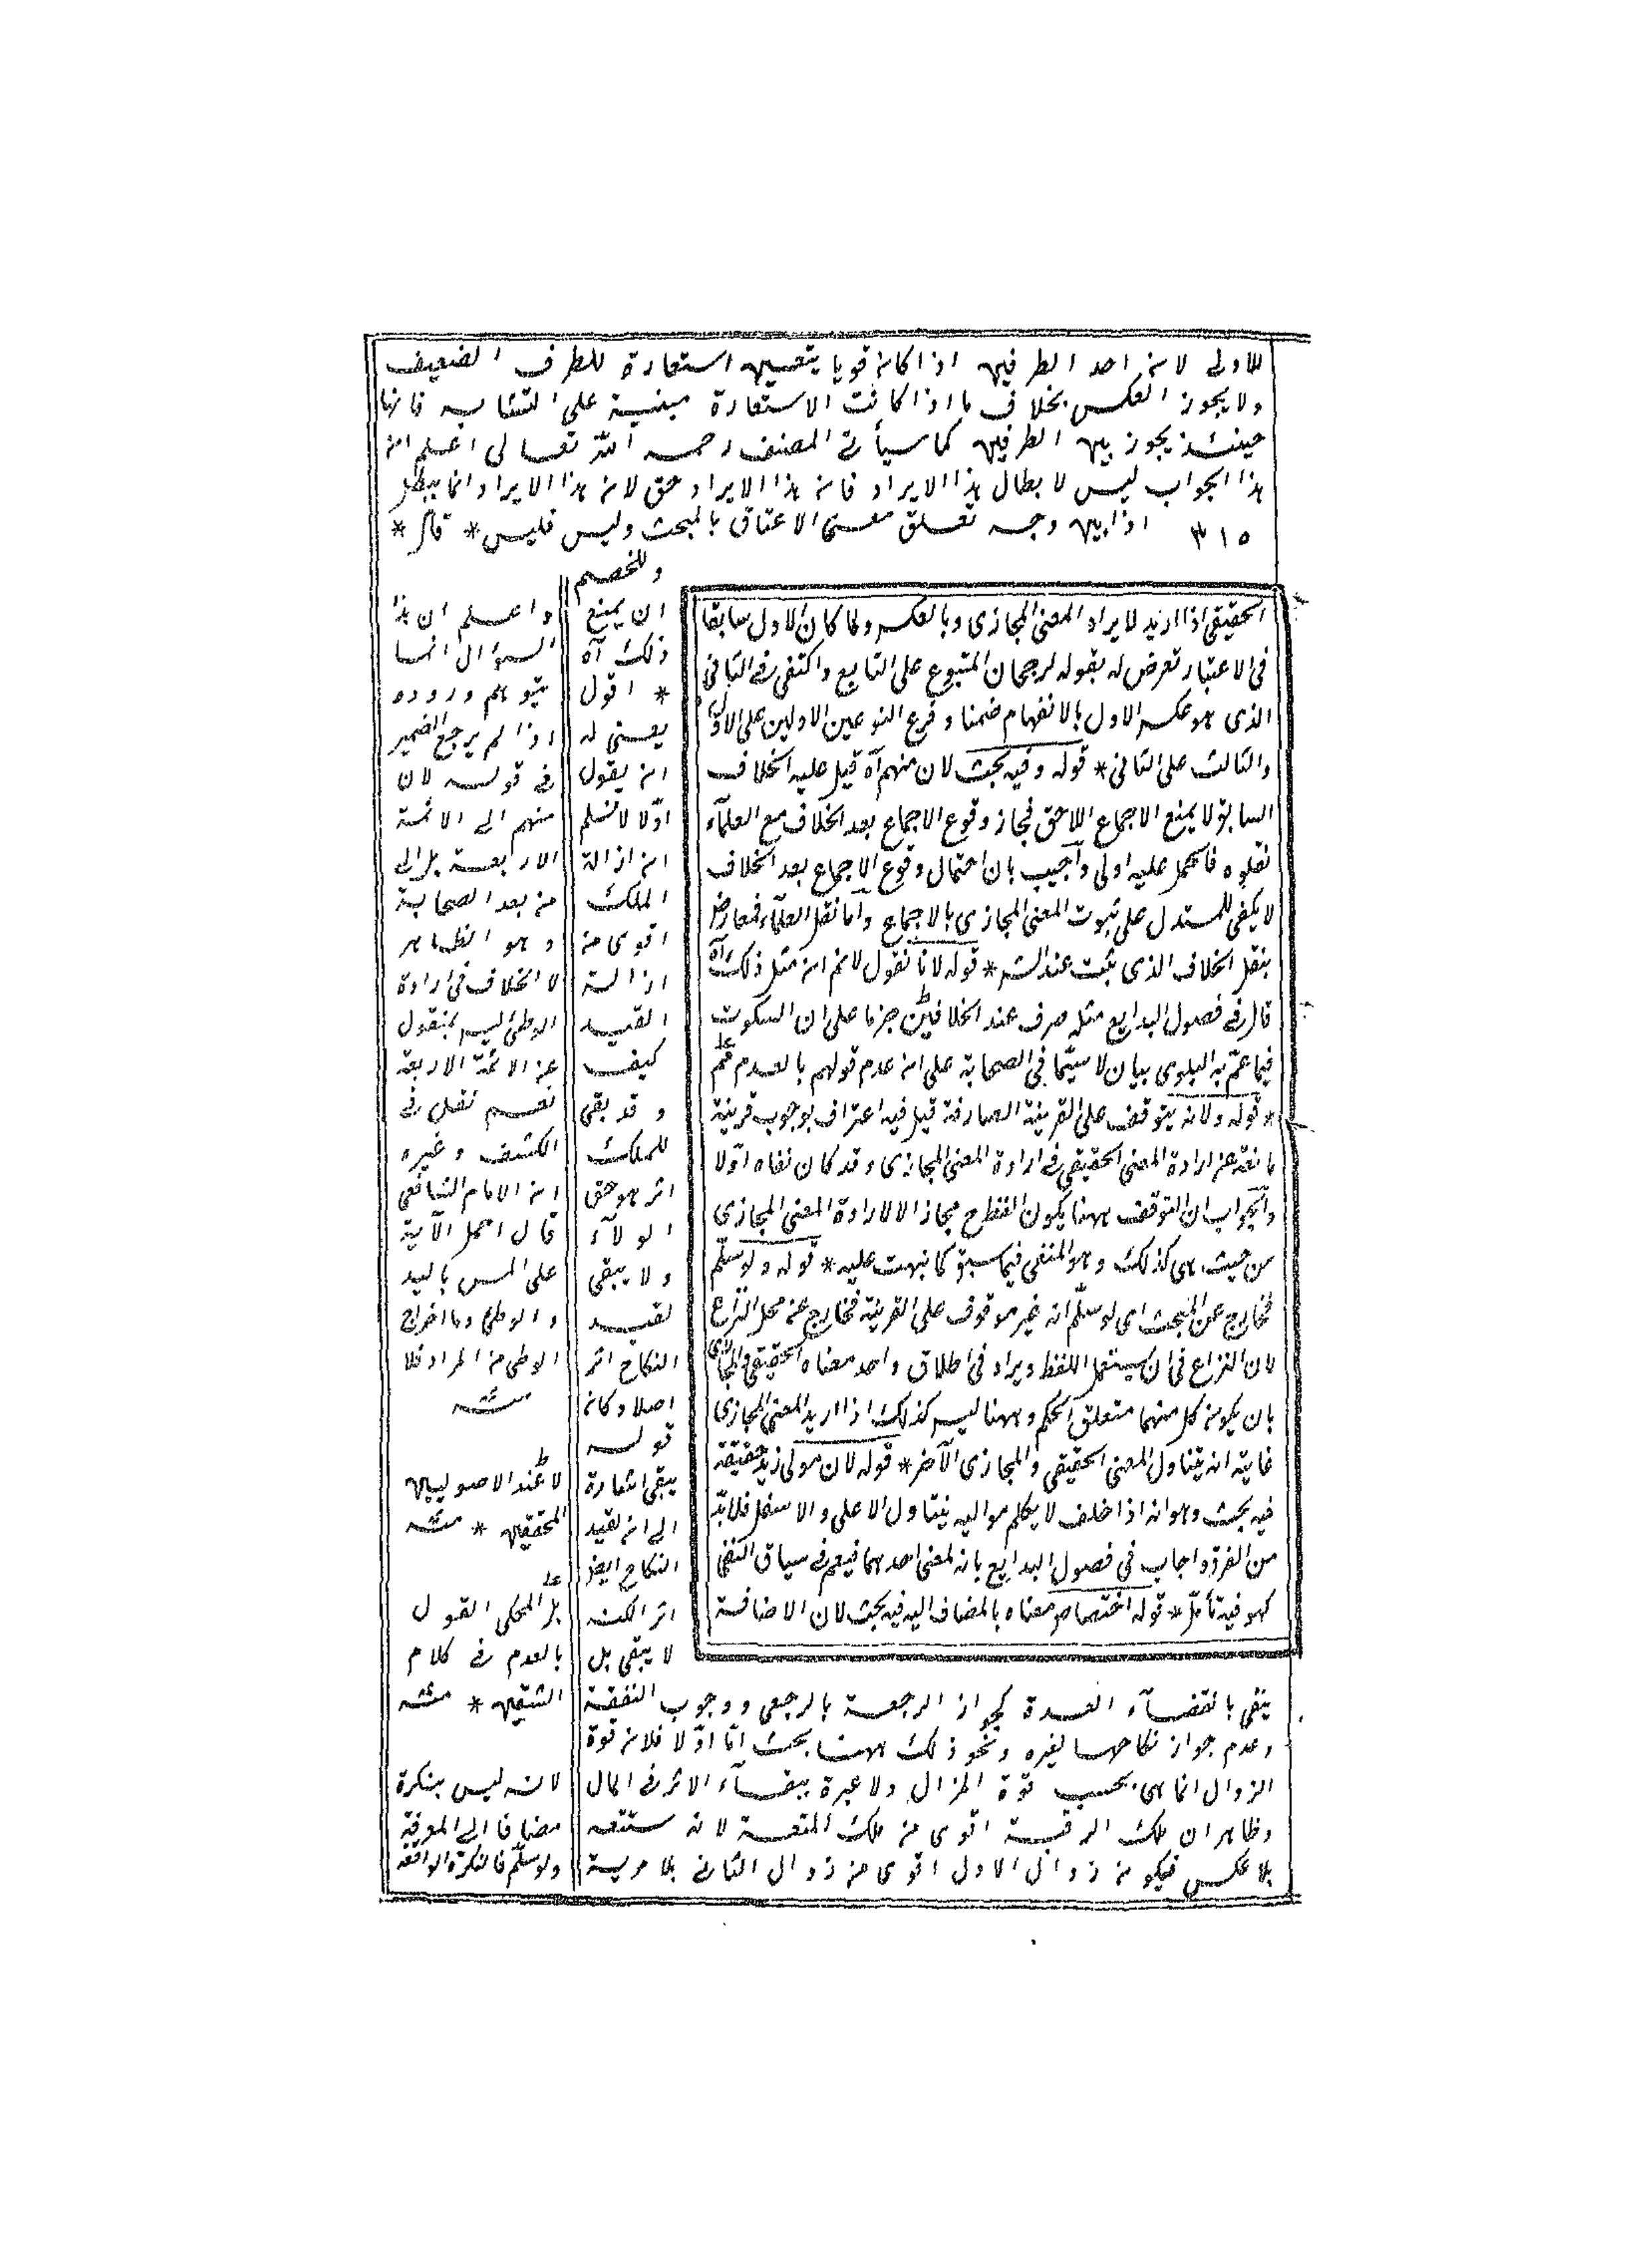 للاولى لان احد الطرفين اذا كان قويا يتعين استعارة للطرف الضعيف
ولا يجوز العكس بخلاف ما اذا كانت الاستعارة مبنية على التشابه فانها
حينئذ يجوز بين الطرفين كما سيأتى المصنف رحمه الله تعالى اعلم ان
هذا الجواب ليس لابطال هذا الايراد فان هذا الايراد حق لان هذا الايراد انما يبطل
اذا بين وجه تعلق معنى الاعتاق بالمبحث وليس فليس *
٣١٥
الحقيقى اذا اريد لا يراد المعنى المجازى وبالعكس ولما كان الاول سابقا
فى الاعتبار تعرض له بقوله لرجحان المتبوع على التابع واكتفى فى الثانى
الذى هو عكس الاول بالانفهام ضمنا وفرع النوعين الاولين على الاول
والثالث على الثانى * قوله وفيه بحث لان منهم آه قيل عليه الخلاف
السابق لا يمنع الاجماع اللاحق فجاز وقوع الاجماع بعد الخلاف مع العلمآء
نقلوه فالحمل عليه اولى واجيب بان احتمال وقوع الاجماع بعد الخلاف
لا يكفى للمستدل على ثبوت المعنى المجازى بالاجماع واما نقل العلمآء فمعارض
بنقل الخلاف الذى ثبت عند الش * قوله لانا نقول لانم ان مثل ذلك آه
قال فى فصول البدايع مثله صرف عند الخلافين جزما على ان السكوت
فيما عم به البلوى بيان لا سيما فى الصحابة على ان عدم قولهم بالعدم
* قوله ولانه يتوقف على القرينة الصارفة قيل فيه اعتراف بوجوب قرينة
مانعة عن ارادة المعنى الحقيقى فى ارادة المعنى المجازى وقد كان نفاه اولا
والجواب ان التوقف ههنا يكون اللفظ ح مجازا لا لارادة المعنى المجازى
من حيث هى كذلك وهو المنفى فيما سبق كما نبهت عليه * قوله ولو سلم
فخارج عن المبحث اى لو سلم انه غير موقوف على القرينة فخارج عن محل النزاع
لان النزاع فى ان يستعمل اللفظ ويراد فى اطلاق واحد معناه الحقيقى والمجازى
بان يكون كل منهما متعلق الحكم وههنا ليس كذلك اذا اريد المعنى المجازى
غايته انه يتناول المعنى الحقيقى والمجازى الآخر * قوله لان مولى زيد حقيقة
فيه بحث وهو انه اذا حلف لا يكلم مواليه يتناول الاعلى والاسفل فلا بد
من الفرق واجاب فى فصول البدايع بانه لمعنى احدهما فيعم فى سياق النفى
كهو فيه تأمل * قوله اختصاص معناه بالمضاف اليه فيه بحث لان الاضافة
وللخصم
ان يمنع
ذلك آه
* اقول
يعنى له
ان يقول
اولا لا نسلم
ان ازالة
الملك
اقوى من
ازالة
القيد
كيف
وقد بقى
للملك
اثر هو حق
الولآء
ولا يبقى
لقيد
النكاح اثر
اصلا وكان
قوله
يبقى اشارة
الى ان لقيد
النكاح ايض
اثر الكنه
لا يبقى بل
ينفى بانقضآء العدة كجواز الرجعة بالرجعى ووجوب النفقة
وعدم جواز نكاحها لغيره ونحو ذلك ههنا بحث اما اولا فلان قوة
الزوال انما هى بحسب قوة المزال ولا عبرة ببقآء الاثر فى المال
وظاهر ان ملك الرقبة اقوى من ملك المتعة لانه ستتبعه
بلا عكس فيكون زوال الاول اقوى من زوال الثانى بلا مرية
واعلم ان هذا
السؤال انما
يتوهم وروده
اذا لم يرجع الضمير
فى قوله لان
منهم الى الائمة
الاربعة بل الى
من بعد الصحابة
وهو الظاهر
لا الخلاف فى ارادة
الوطئ ليس بمنقول
عن الائمة الاربعة
نعم نقل فى
الكشف وغيره
ان الامام الشافعى
قال احمل الآية
على المس باليد
والوطئ وما اخراج
الوطى من المراد فلا
منه
لا عند الاصوليين
المحققين * منه
بل المحكى القول
بالعدم فى كلام
الشقين * منه
لانه ليس بنكرة
مضافا الى المعرفة
ولو سلم فالنكرة الواقعة